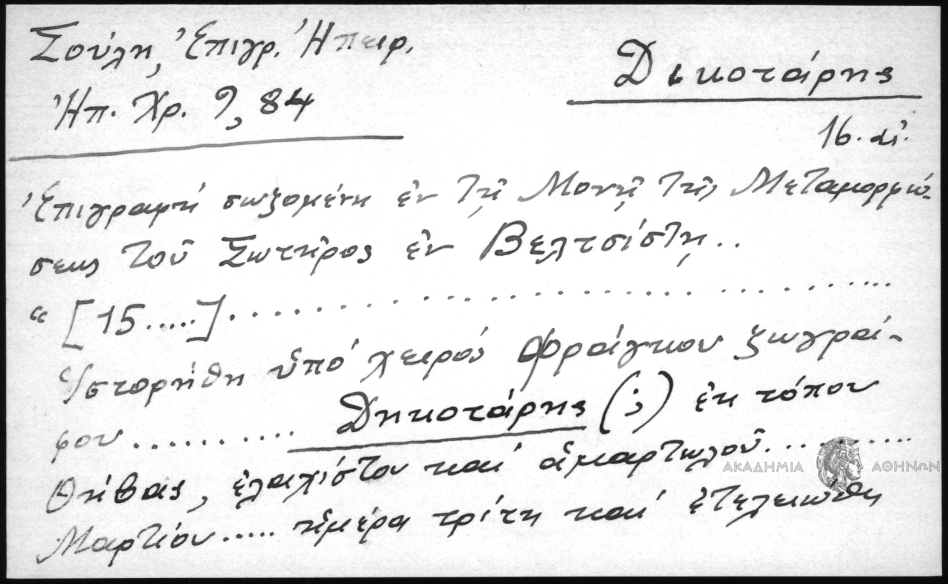 Σούλη, Ἐπιγρ. Ἠπειρ.
Ἠπ. Χρ. 9, 84
Δικοτάρης
16. αἰ.
Ἐπιγραφή σωζομένη ἐν τῇ Μονῇ τῆς Μεταμορφώ-
σεως τοῦ Σωτῆρος ἐν Βελτσίστῃ..
“ [15.....]..............................
Ἱστορήθη ὑπό χειρός Φράγκου ζωγρά-
φου .......... Δηκοτάρης (;) ἐκ τόπου
Θήβας, ἐλαχίστου καί ἁμαρτωλοῦ..........
Μαρτίου..... ἡμέρα τρίτη καί ἐτελειώθη
ΑΚΑΔΗΜΙΑ ΑΘΗΝΩΝ